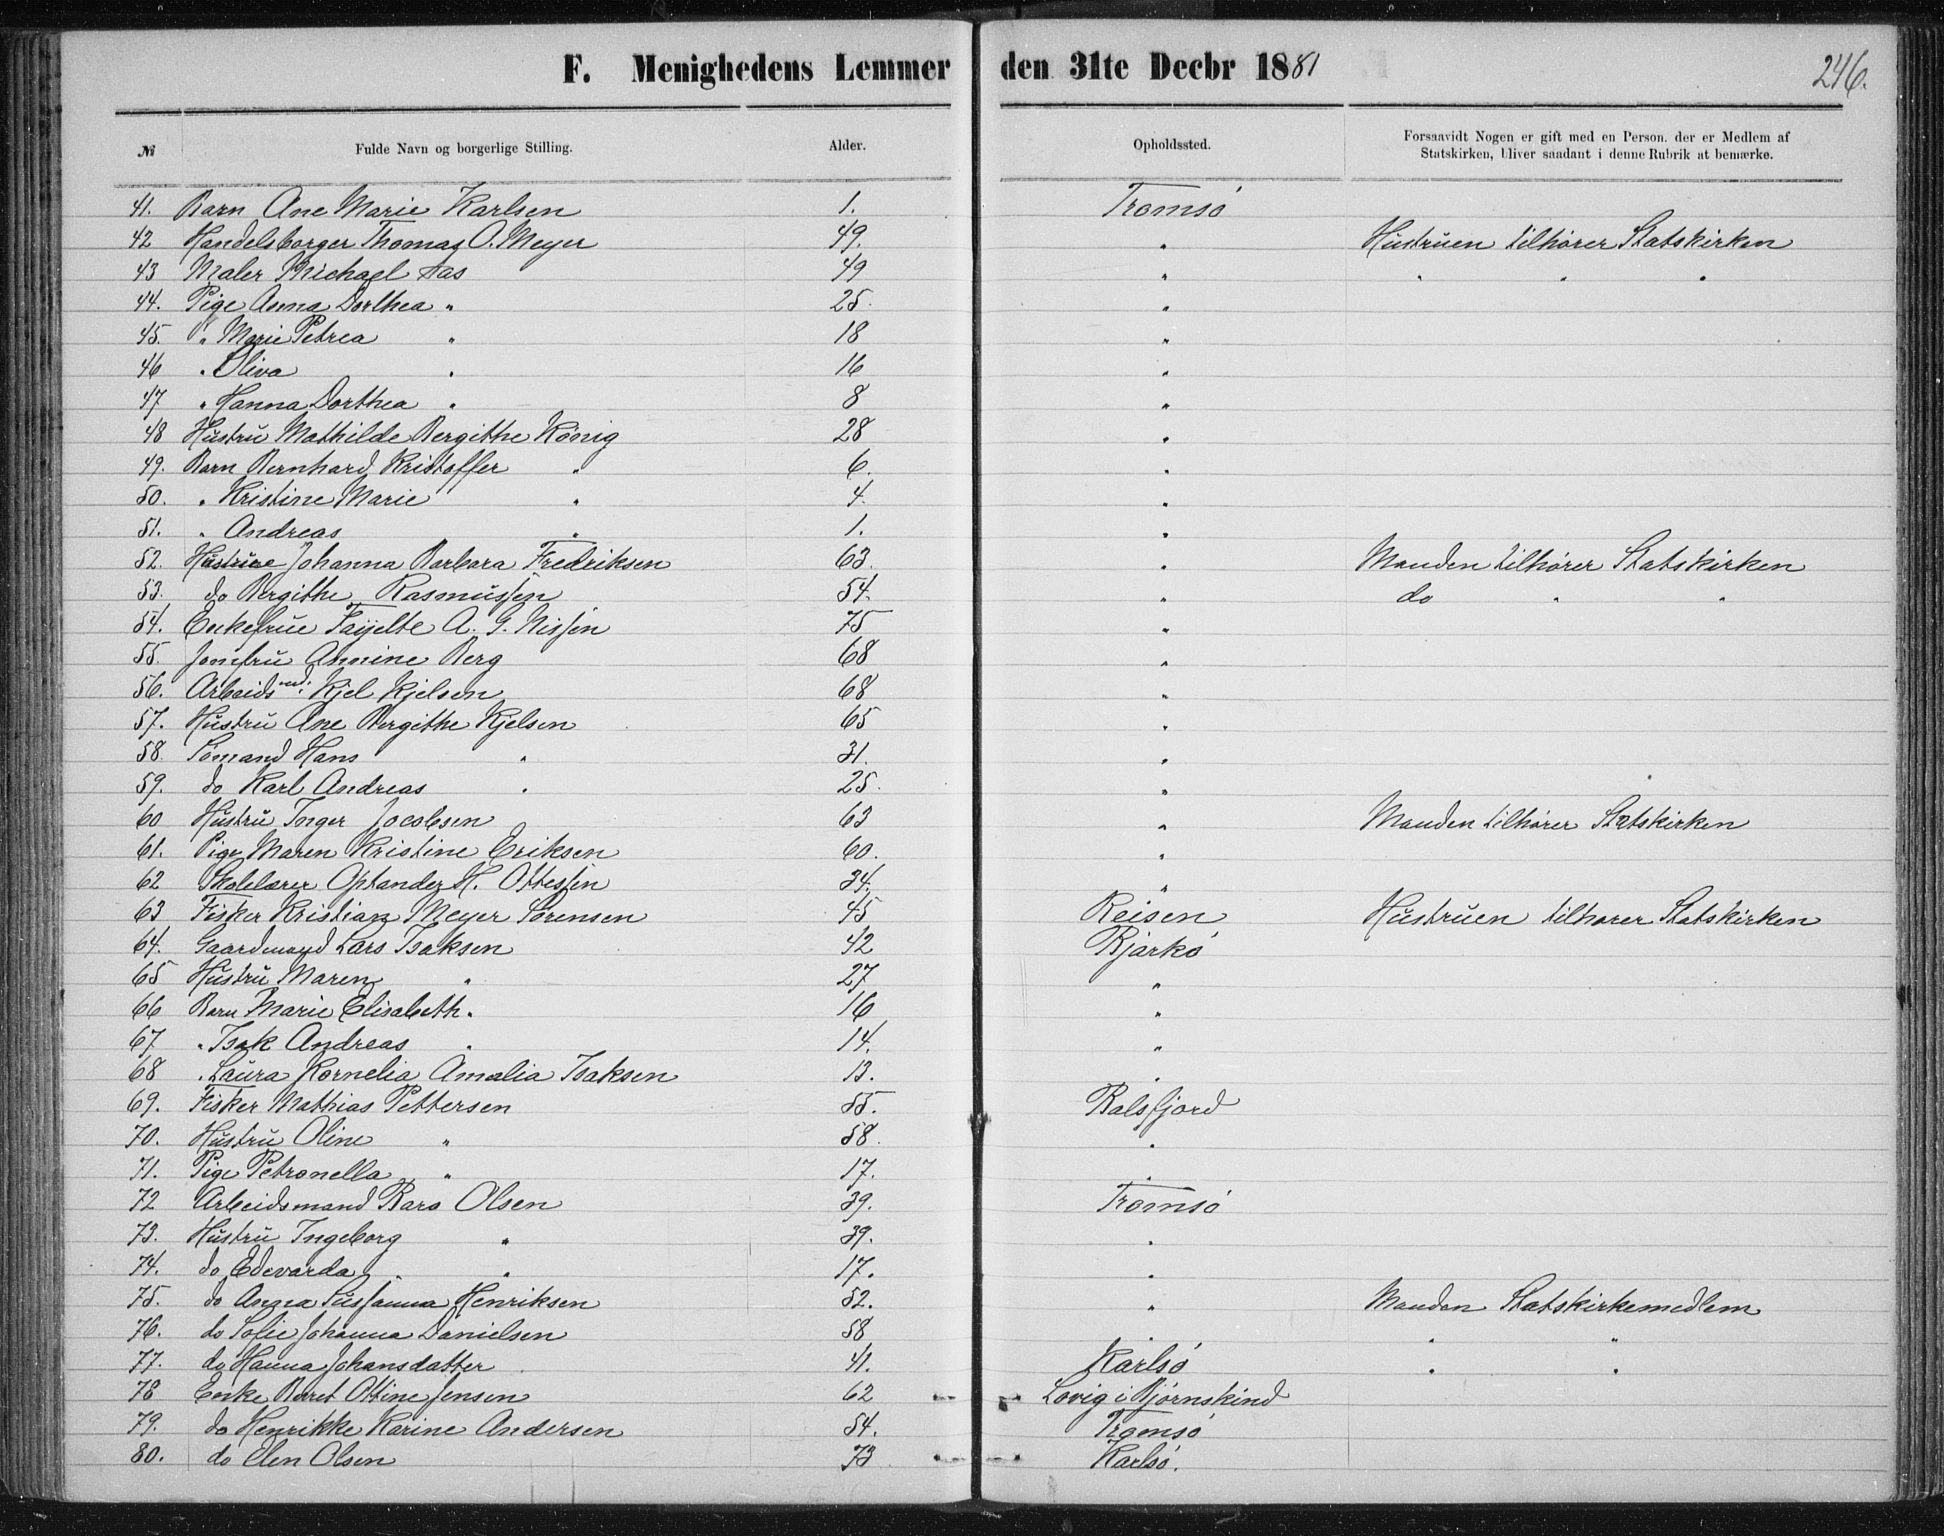 F. Menighedens Lemmer den 31te Decbr 1881
246.
№ Fulde Navn og borgerlige Stilling. Alder. Opholdssted. Forsaavidt Nogen er gift med en Person, der er Medlem af
Statskirken, bliver saadant i denne Rubrik at bemærke.
41. Barn Ane Marie Karlsen 1. Tromsø
42 Handelsborger Thomas O. Meyer 49. " Hustruen tilhører Statskirken
43 Maler Michael Aas 49 " " " "
44. Pige Anna Dorthea " 25. "
45. " Marie Petrea " 18 "
46 " Oliva " 16 "
47 " Hanna Dorthea " 8 "
48 Hustru Mathilde Bergithe König 28 "
49. Barn Bernhard Kristoffer " 6. "
50. " Kristine Marie " 4. "
51. " Andreas " 1. "
52. Hustrue Johanna Barbara Fredriksen 63. " Manden tilhører Statskirken
53. do Bergithe Rasmussen 54. " do " "
54. Enkefrue A. G. Nissen 75 "
55. Jomfru Annine Berg 68 "
56. Arbeidsmd. Kjel Kjelsen 68 "
57. Hustru Ane Bergithe Kjelsen 65 "
58. Sømand Hans " 31. "
59. do Karl Andreas " 25. "
60 Hustru Inger Jacobsen 63 " Manden tilhører Statskirken
61. Pige Maren Kristine Eriksen 60. "
62 Skolelærer H. Ottessen 34. "
63 Fisker Kristian Meyer Sørensen 45 Reisen Hustruen tilhører Statskirken
64. Gaardmand Lars Isaksen 42 Bjarkø
65 Hustru Maren " 27 "
66 Barn Marie Elisabeth " 16 "
67 " Isak Andreas " 14. "
68 " Laura Kornelia Amalia Isaksen 13. "
69. Fisker Mathias Pettersen 55. Balsfjord
70. Hustru Oline " 58. "
71. Pige Petronella " 17. "
72 Arbeidsmand Lars Olsen 39. Tromsø
73. Hustru Ingeborg " 39. "
74. do Edevarda " " 17. "
75. do Anna Susanna Henriksen 52. " Manden Statskirkemedlem
76. do Sofie Johanna Danielsen 58 " " "
77. do Hanna Johansdatter 41. Karlsø " "
78 Enke Beret Oline Jensen 62 Lovig i Bjørnskind
79. do Henrikke Karine Andersen 54. Tromsø
80. do Elen Olsen 73 Karlsø.